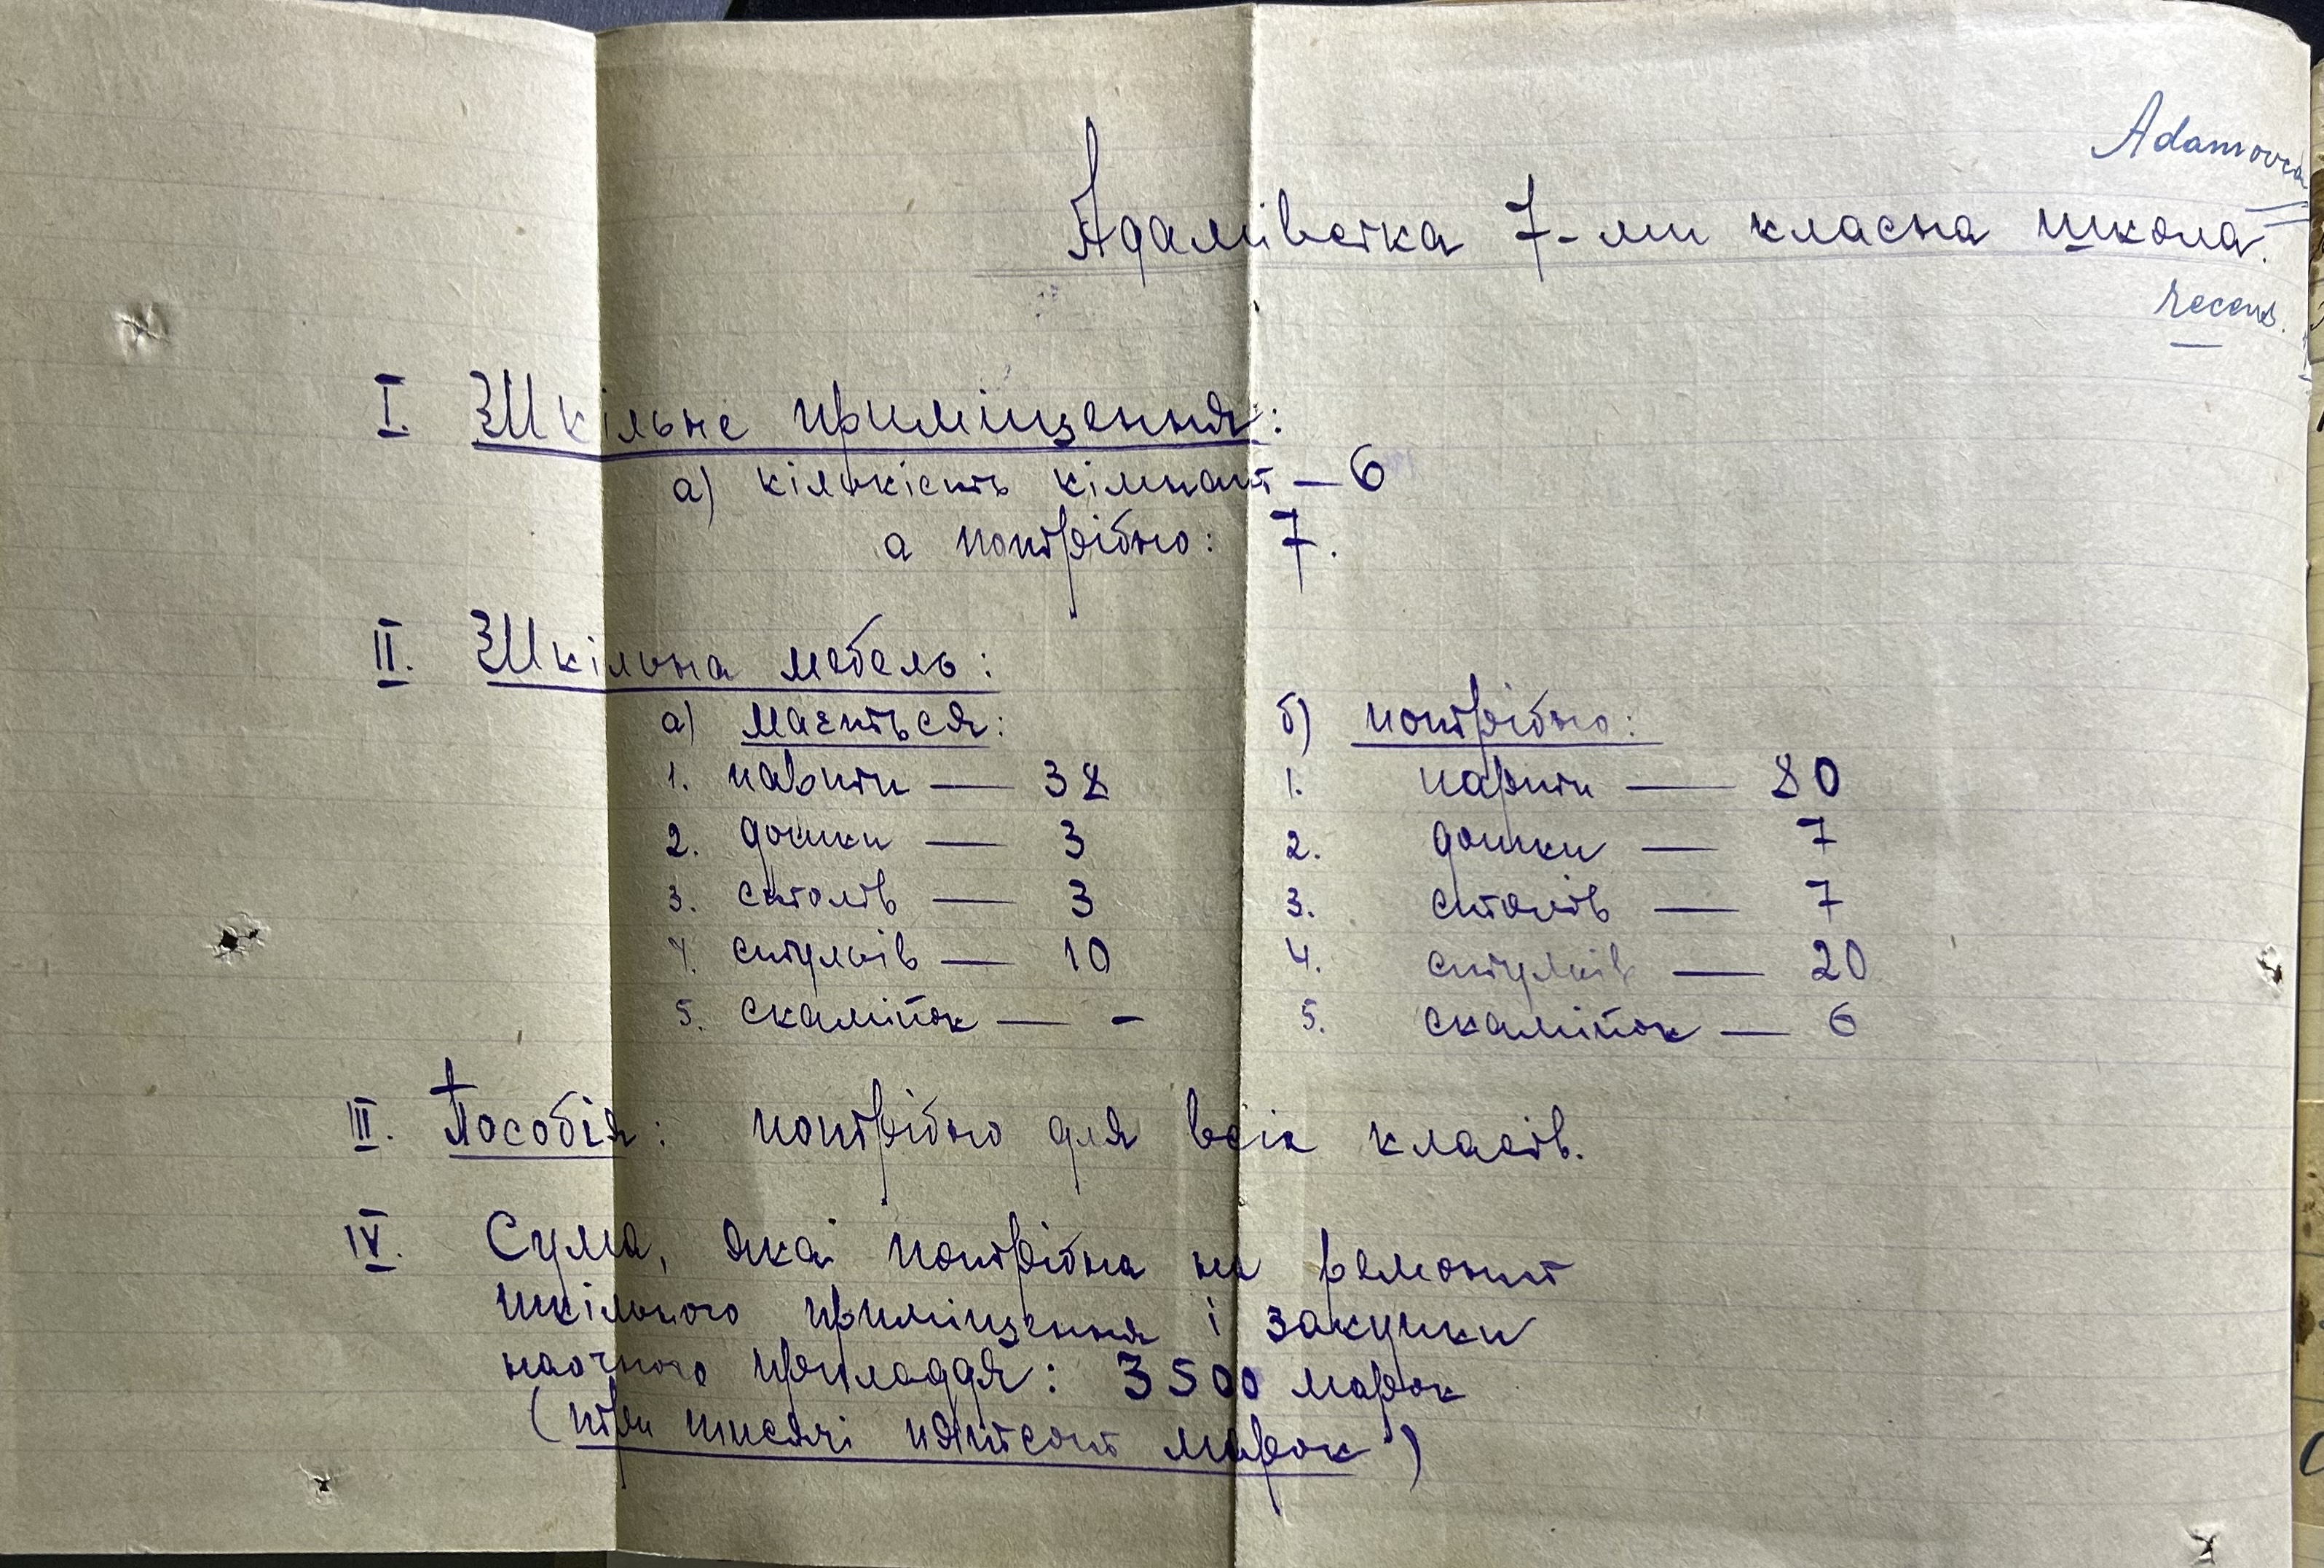 Adamovca
Адамівська 7-ми класна школа.
recens.
I. Шкільне приміщення:
а) кількість кімнат — 6
а потрібно: 7.
II. Шкільна мебель:
а) мається: б) потрібно:
1. парти — 38 1. парти — 80
2. дошки — 3 2. дошки — 7
3. столів — 3 3. столів — 7
4. стульів — 10 4. стульів — 20
5. скамійок — - 5. скамійок — 6
III. Пособія: потрібно для всіх класів.
IV. Сума, яка потрібна на ремонт
шкільного приміщення і закупки
наочного приладдя: 3500 марок
(три тисячі пятсот марок)